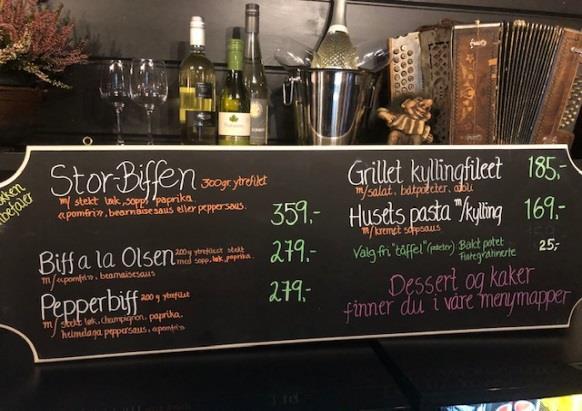 kken
nbefaler
Stor-Biffen 300gr. ytrefilet
m/ stekt løk, sopp, paprika
«pomfri», bearnaisesaus eller peppersaus.
359,-
Biff a la Olsen 200g ytrefilet stekt
med sopp, løk, paprika.
m/ «pomfri», bearnaisesaus
279,-
Pepperbiff 200g ytrefilet
m/ stekt løk, champignon, paprika
heimelaga peppersaus, «pomfri»
279,-
Grillet kyllingfileet 185,-
m/salat, båtpoteter, aioli
Husets pasta m/kylling 169,-
m/ kremet soppsaus
Valg fri "tåffel" (poteter) Bakt potet 25,-
Fløtegratinerte
Dessert og kaker
finner du i våre menymapper